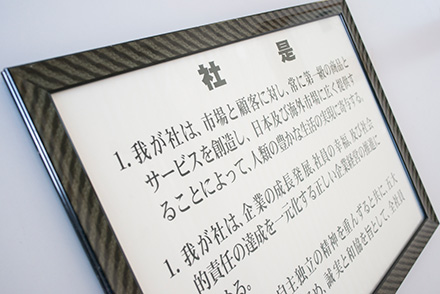 社是
1. 我が社は、市場と顧客に対し、常に第一級の商品と
サービスを創造し、日本及び海外市場に広く提供す
ることによって、人類の豊かな生活の実現に寄与する。
1. 我が社は、企業の成長発展、社員の幸福、及び社会
的責任の達成を一元化する正しい企業経営の推進に
める。
自主独立の精神を重んずると共に、五大
め、誠実と和協を旨として、全社員